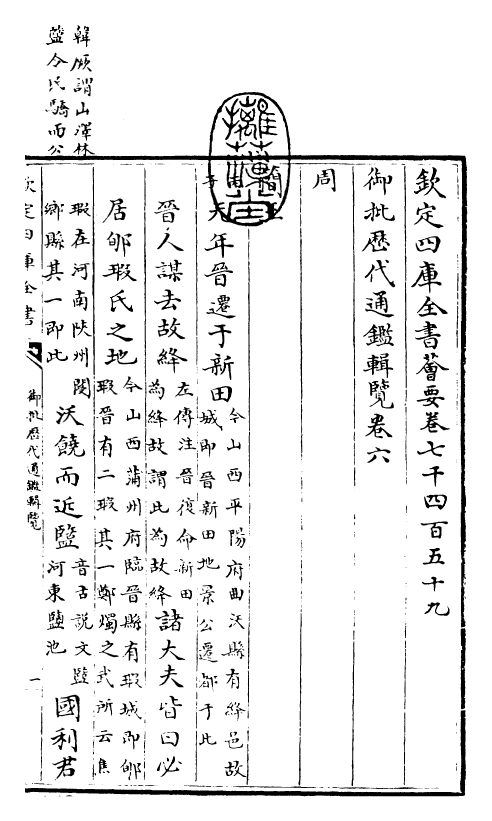 韓厥謂山澤林
盬令民驕而公
欽定四庫全書薈要卷七千四百五十九
御批歷代通鑑輯覽卷六
周
簡王
元年晉遷于新田今山西平陽府曲沃縣有絳邑故
城即晉新田地景公遷都于此
晉人謀去故絳左傳注晉復命新田
為絳故謂此為故絳諸大夫皆曰必
居郇瑕氏之地今山西蒲州府臨晉縣有瑕城即郇
瑕晉有二瑕其一鄭燭之武所云焦
瑕在河南陝州閿
鄉縣其一即此沃饒而近盬音古說文盬
河東鹽池國利君
欽定四庫全書
御批歷代通鑑輯覽
一